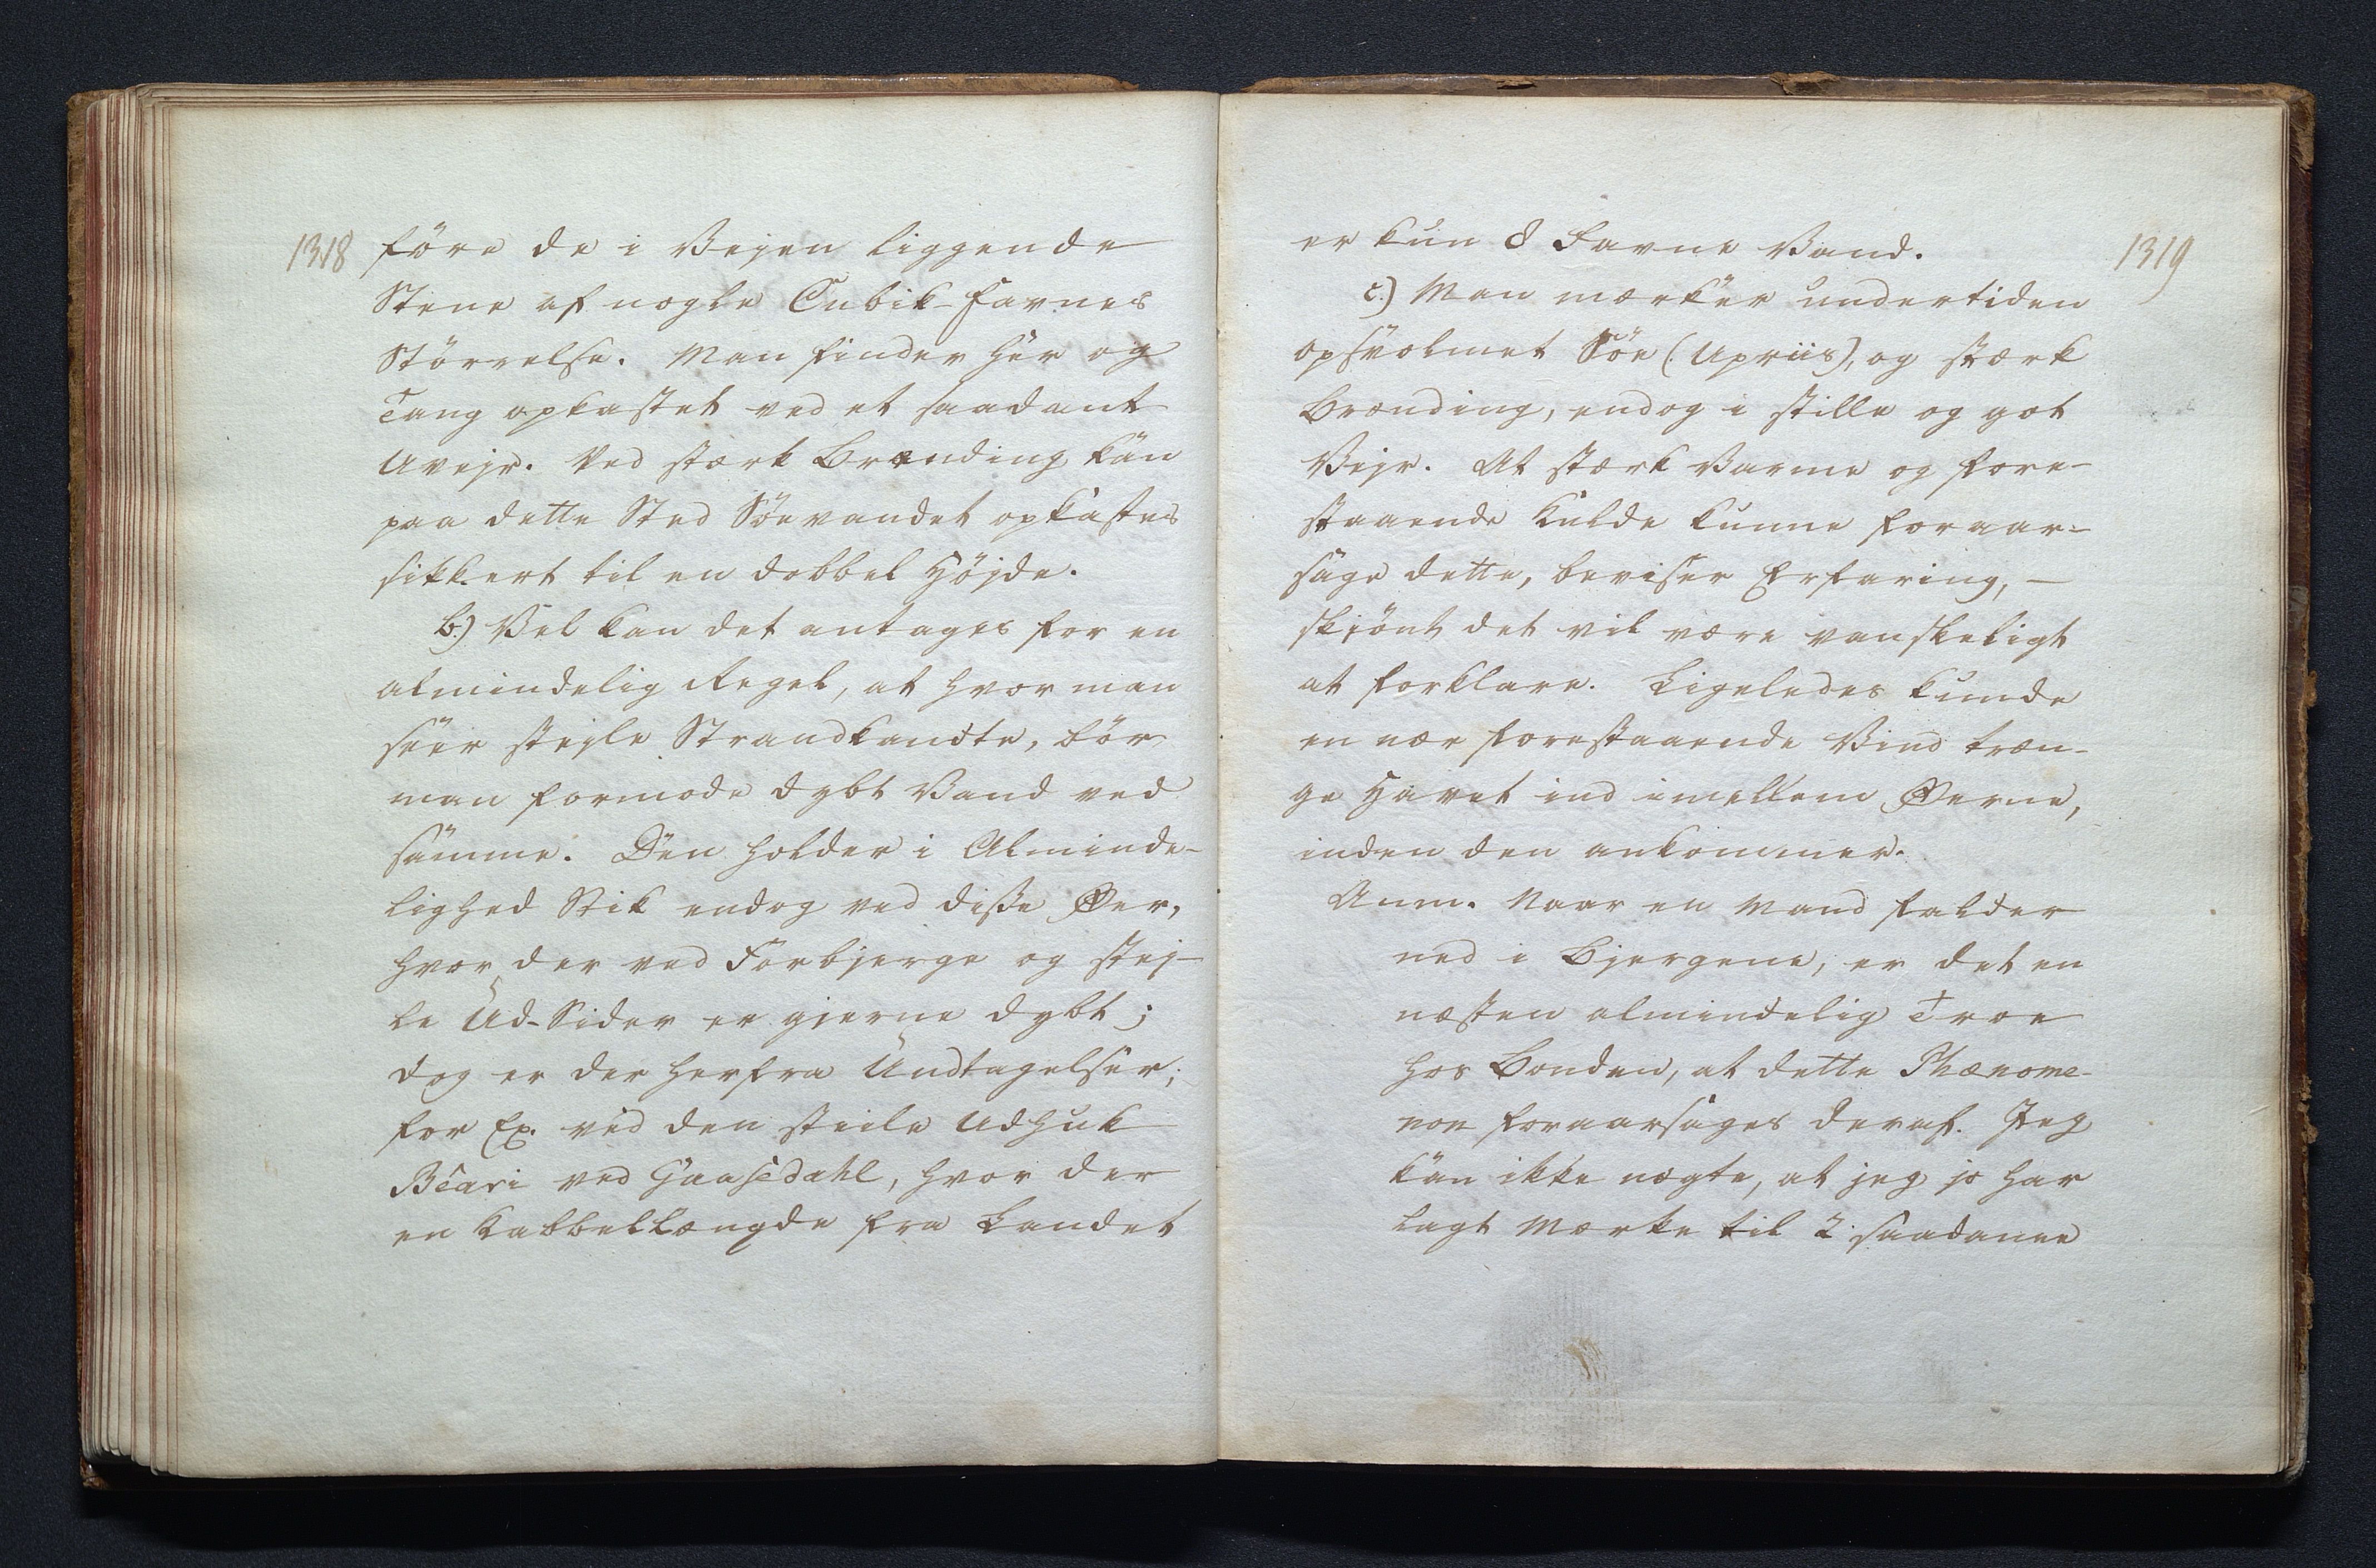 1318
före de i Vejen liggende
Stene af nogle Cubik-Favnes
Störrelse. Man finder her og
Tang opkastet ved et saadant
Uvejr. Ved stærk Brænding kan
paa dette Sted Söevandet opkastes
sikkert til en dobbel Höjde.
b.) Vel kan det antages for en
almindelig Regel, at hvor man
seer stejle Strandkandte, bör
man formode dybt Vand ved
samme. Den holder i Alminde-
lighed Stik endog ved disse Øer,
hvor der ved Forbjerge og stej-
le Ud-Sider er gjerne dybt;
dog er der herfra Undtagelser;
for Ex. ved den steile Udhuk
Bëari ved Gaasedahl, hvor der
en Kabbellængde fra Landet
1319
er kun 8 Favne Vand.
c.) Man mærker undertiden
opsvolmet Söe (Upriis), og stærk
Brænding, endog i stille og got
Vejr. At stærk Varme og fore-
staaende Kulde kunne foraar-
sage dette, beviser Erfaring, —
skjönt det vil være vanskeligt
at forklare. Ligeledes kunde
en nær forestaaende Vind træn-
ge Havet ind imellem Øerne,
inden den ankommer.
Anm. Naar en Mand falder
ned i Bjergene, er det en
næsten almindelig Troe
hos Bonden, at dette Phænome-
non foraarsages deraf. Jeg
kan ikke nægte, at jeg jo har
lagt Mærke til 2 saadanne